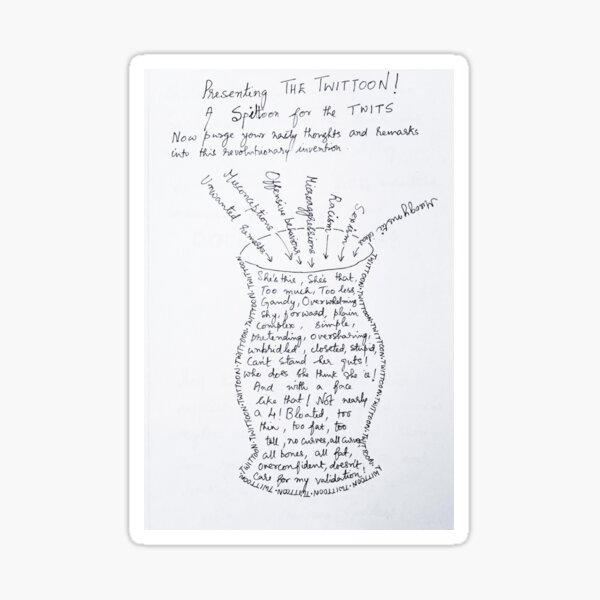 Presenting THE TWITTOON!
A Spittoon for the TWITS
Now purge your nasty thoughts and remarks
into this revolutionary invention.
Unwanted Remarks
Misconceptions
Offensive behaviour
Microaggressions
Racism
Sexism
Misogynistic ideas
TWITTOON·TWITTOON·TWITTOON·TWITTOON·TWITTOON·TWITTOON·TWITTOON
She's this, She's that,
Too much, Too less,
Gandy, Overwhelming
shy, forward, plain
complex, simple,
pretending, oversharing,
unbridled, closeted, stupid,
Can't stand her guts!
who does she think she is!
And with a face
like that! Not nearly
a 4! Bloated, too
thin, too fat, too
tall, no curves, all curves!
all bones, all fat,
overconfident, doesn't
care for my validation!